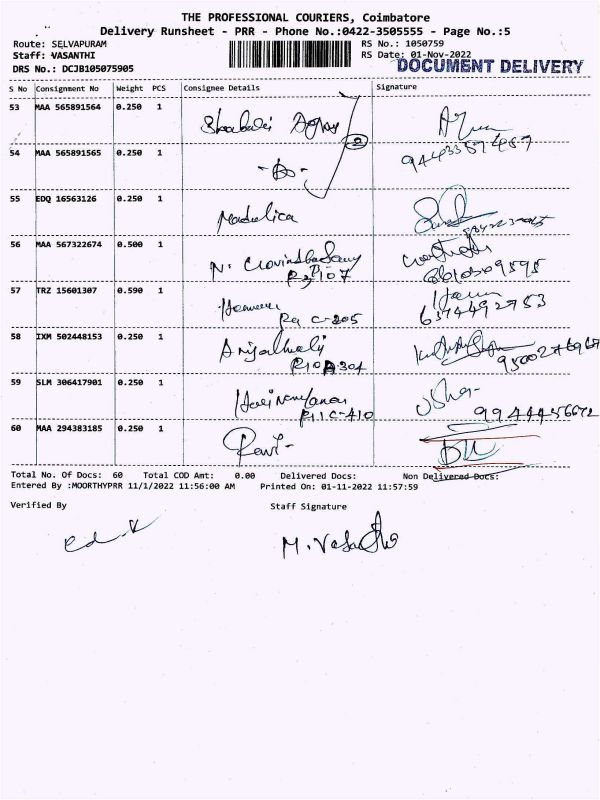 THE PROFESSIONAL COURIERS, Coimbatore
Delivery Runsheet - PRR - Phone No.:0422-3505555 - Page No.:5
Route: SELVAPURAM
RS No.: 1050759
Staff: VASANTHI
RS Date: 01-Nov-2022
DOCUMENT DELIVERY
DRS No.: DCJB105075905
S No Consignment No Weight PCS Consignee Details Signature
53 MAA 565891564 0.250 1
54 MAA 565891565 0.250 1 -Do-
9443357487
55 EDQ 16563126 0.250 1 Madulica
56 MAA 567322674 0.500 1 N.
57 TRZ 15601307 0.590 1
C-205 6374492753
58 IXM 502448153 0.250 1 Anjalhali
59 SLM 306417901 0.250 1 Harinarayanan Usha-
C-410 9944456672
60 MAA 294383185 0.250 1 Ravi-
Total No. Of Docs: 60 Total COD Amt: 0.00 Delivered Docs: Non Delivered Docs:
Entered By :MOORTHYPRR 11/1/2022 11:56:00 AM Printed On: 01-11-2022 11:57:59
Verified By Staff Signature
M. Vasantha